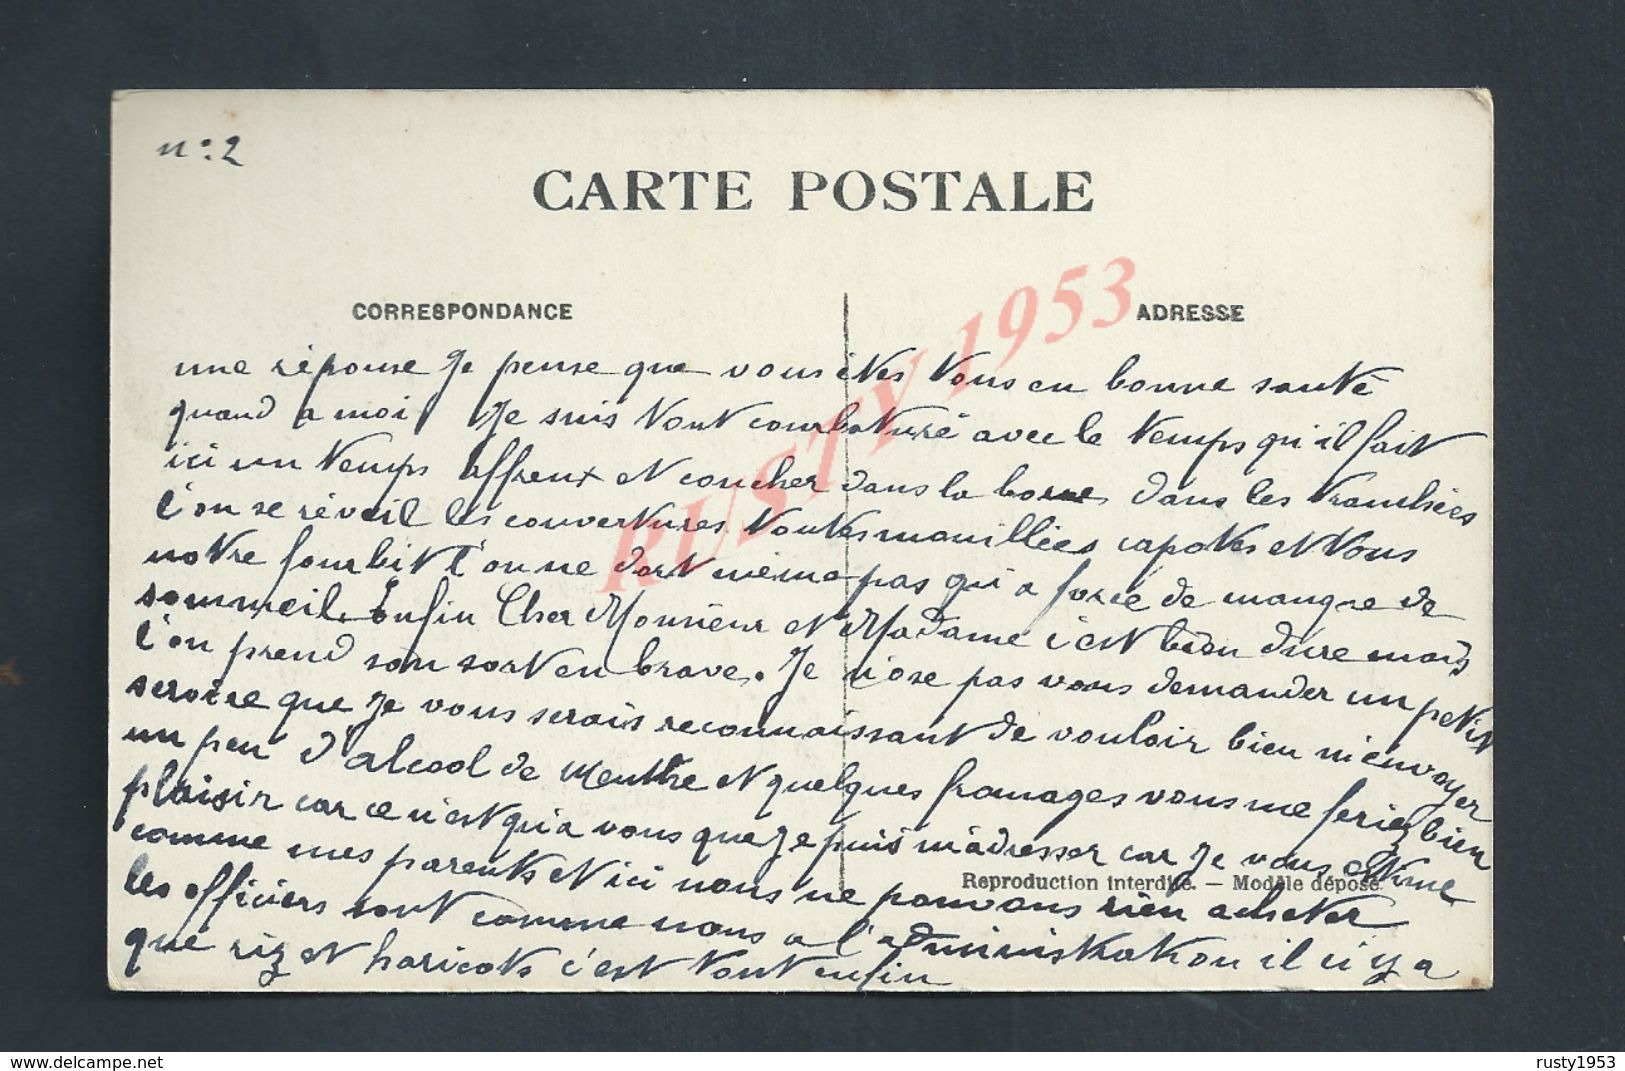 n° 2
CARTE POSTALE
CORRESPONDANCE
ADRESSE
RUSTY 1953
une réponse Je pense que vous êtes tous en bonne santé
quand a moi Je suis tout courbaturé avec le temps qu'il fait
ici un temps affreux et coucher dans la boue dans les tranchées
l'on se réveil les couvertures toutes mouillées capotes et tous
notre fourbit l'on ne dort même pas qu'a force de manque de
sommeil. Enfin Cher Monsieur et Madame c'est bien dure mais
l'on prend son sort en brave. Je n'ose pas vous demander un petit
service que Je vous serais reconnaissant de vouloir bien m'envoyer
un peu d'alcool de menthe et quelques fromages vous me feriez bien
plaisir car ce n'est qu'a vous que Je puis m'adresser car Je vous estime
comme mes parents et ici nous ne pouvons rien acheter
Reproduction interdite. — Modèle déposé.
les officiers sont comme nous a l'administration il n'y a
que riz et haricots c'est tout enfin
delcampe.net
rusty1953